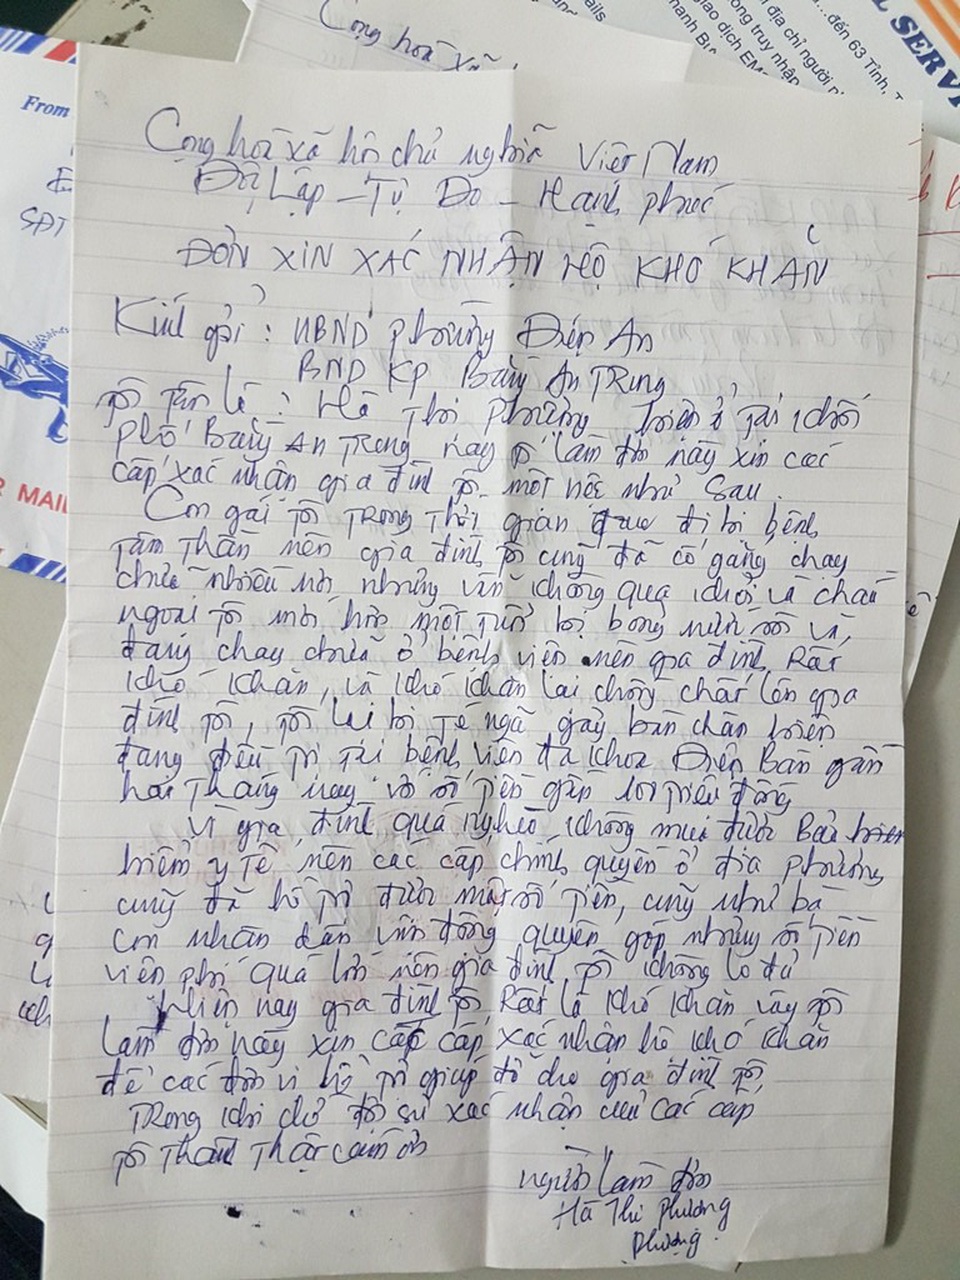 Cộng hoà xã
From
SĐT
R MAIL
...đến 63 Tỉnh, T
i địa chỉ người n
ong truy nhập
giao dịch EMS
L SERVI
Cộng hoà xã hội chủ nghĩa Việt Nam
Độc Lập - Tự Do - Hạnh phúc
ĐƠN XIN XÁC NHẬN HỘ KHÓ KHĂN
Kính gửi : UBND phường Điện An
BND KP Bằng An TRung
tôi tên là : Hà Thị Phượng hiện ở tại khối
phố Bằng An Trung nay tôi làm đơn này xin các
cấp xác nhận gia đình tôi một việc như sau.
Con gái tôi trong thời gian qua đi bị bệnh
tâm thần nên gia đình tôi cũng đã cố gắng chạy
chữa nhiều nơi nhưng vẫn không qua khỏi và cháu
ngoại tôi mới hơn một tuổi bị bỏng nước sôi và
đang chạy chữa ở bệnh viện nên gia đình Rất
khó khăn, và khó khăn lại chồng chất lên gia
đình tôi, tôi lại bị té ngã gãy bàn chân hiện
đang điều trị tại bệnh viện đa khoa Điện Bàn gần
hai tháng nay với số tiền gần 100 triệu đồng
Vì gia đình quá nghèo không mua được Bảo hiểm
hiểm y tế nên các cấp chính quyền ở địa phương
cũng đã hỗ trợ được một số tiền, cũng như bà
con nhân dân vận động quyên góp nhưng số tiền
viện phí quá lớn nên gia đình tôi không lo đủ
Hiện nay gia đình tôi Rất là khó khăn vậy tôi
làm đơn này xin các cấp xác nhận hộ khó khăn
để các đơn vị hỗ trợ giúp đỡ cho gia đình tôi,
Trong khi chờ đợi sự xác nhận của các cấp
tôi thành thật cảm ơn
người làm đơn
Hà Thị Phượng
Phượng